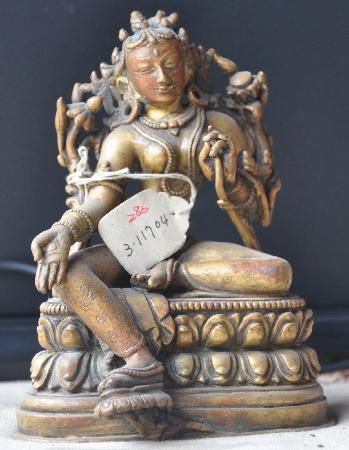 286
3.11704